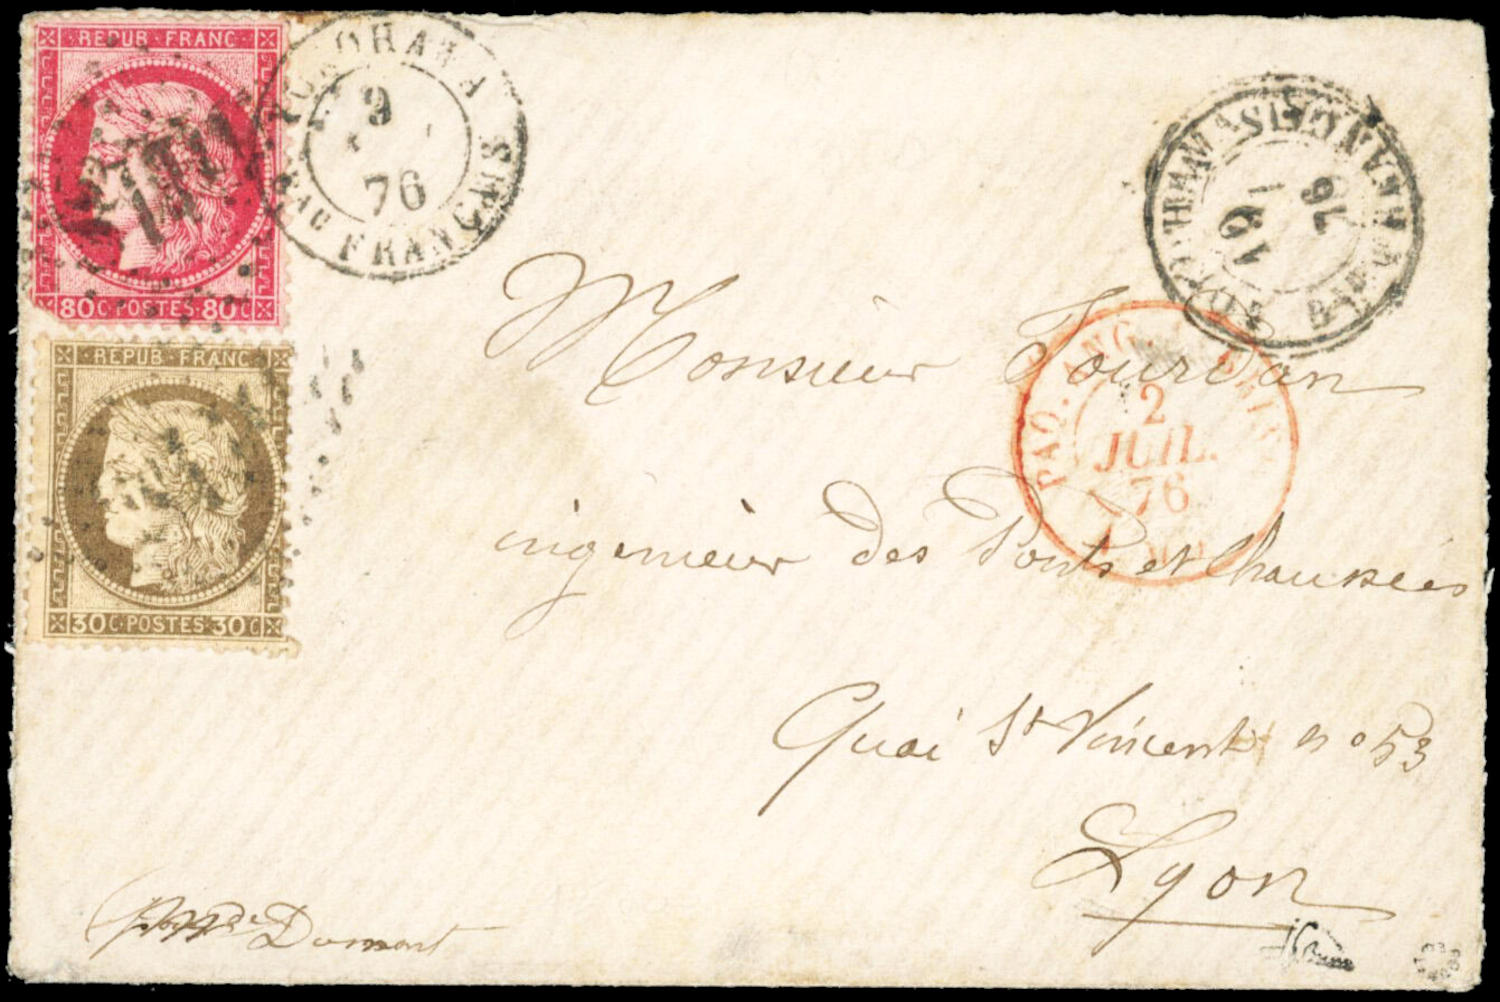 REPUB · FRANC
80 C · POSTES · 80 C
REPUB · FRANC
30 C · POSTES · 30 C
YOKOHAMA
9
76
Bau FRANCAIS
19
1
76
PAQ. ANG.
2
JUIL.
76
Monsieur Jourdan
ingénieur des Ponts et Chaussées
Quai St Vincent no 53
Lyon
Dumont